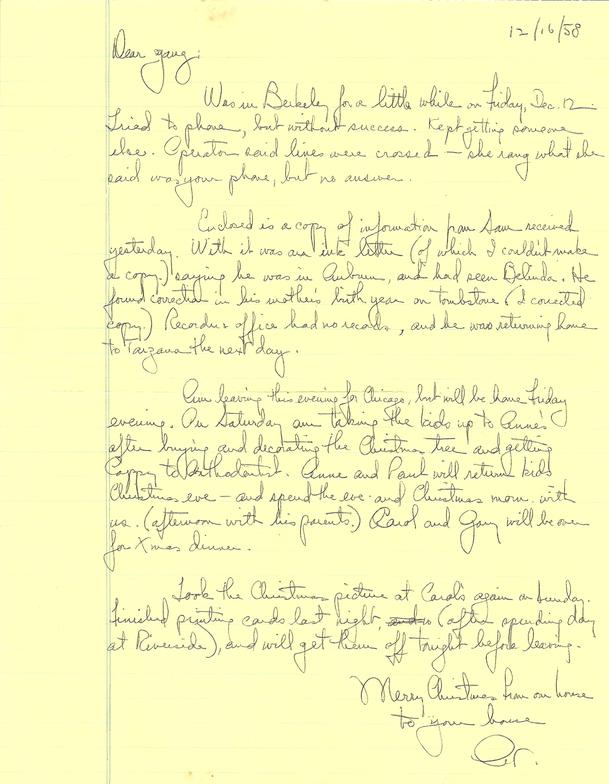 12/16/58
Dear gang:
Was in Berkeley for a little while on Friday, Dec. 12.
Tried to phone, but without success. Kept getting someone
else. Operator said lines were crossed – she rang what she
said was your phone, but no answer.
Enclosed is a copy of information from Sam received
yesterday. With it was an ink letter (of which I couldn't make
a copy.) saying he was in Auburn, and had seen Belinda. He
found correction in his mother's birth year on tombstone (I corrected
copy.) Recorder's office had no records, and he was returning home
to Tarzana the next day.
Am leaving this evening for Chicago, but will be home Friday
evening. On Saturday am taking the kids up to Anne's
after buying and decorating the Christmas tree and getting
Cappy to Orthodontist. Anne and Paul will return kids
Christmas eve – and spend the eve. and Christmas morn. with
us. (afternoon with his parents.) Carol and Gary will be over
for Xmas dinner.
Took the Christmas picture at Carol's again on Sunday.
Finished printing cards last night, (after spending day
at Riverside), and will get them off tonight before leaving.
Merry Christmas from our house
to your house